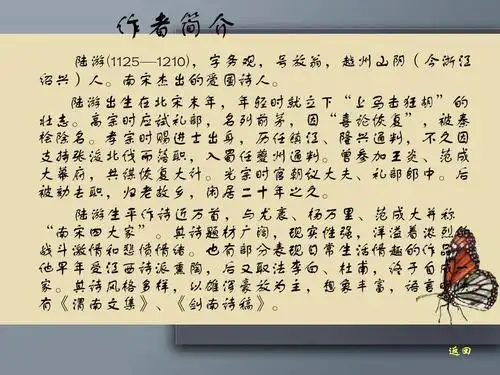 作者简介
陆游(1125—1210)，字务观，号放翁，越州山阴（今浙江
绍兴）人。南宋杰出的爱国诗人。
陆游出生在北宋末年，年轻时就立下“上马击狂胡”的
壮志。高宗时应试礼部，名列前茅，因“喜论恢复”，被秦
桧除名。孝宗时赐进士出身，历任镇江、隆兴通判，不久因
支持张浚北伐而落职，入蜀任夔州通判。曾参加王炎、范成
大幕府，共谋恢复大计。光宗时官朝议大夫、礼部郎中。后
被劾去职，归老故乡，闲居二十年之久。
陆游生平作诗近万首，与尤袤、杨万里、范成大并称
“南宋四大家”。其诗题材广阔，现实性强，洋溢着浓烈的
战斗激情和悲愤情绪。也有部分表现日常生活情趣的作品
他早年受江西诗派熏陶，后又取法李白、杜甫，终于自
家。其诗风格多样，以雄浑豪放为主，想象丰富，语言
有《渭南文集》、《剑南诗稿》。
返回